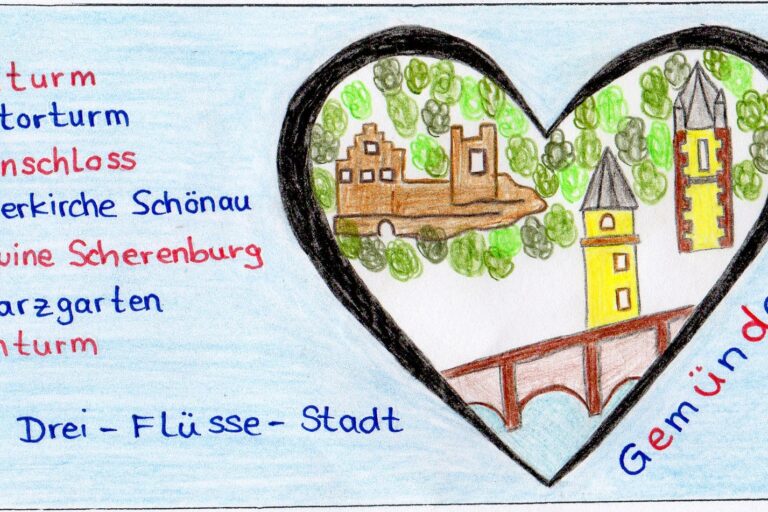 turm
torturm
nschloss
erkirche Schönau
uine Scherenburg
arzgarten
nturm
Drei-Flüsse-Stadt
Gemünd